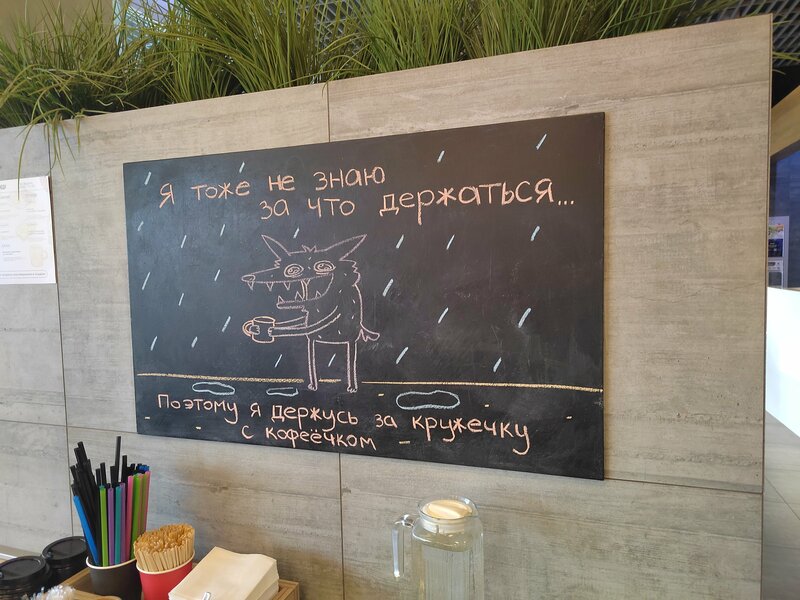 Я тоже не знаю
за что держаться...
Поэтому я держусь за кружечку
с кофеёчком